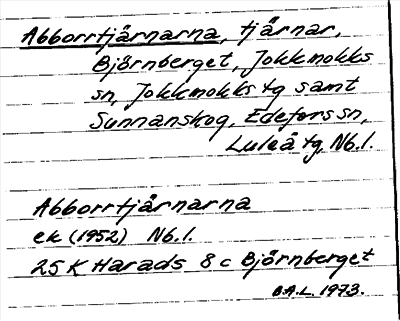 Abborrtjärnarna, tjärnar,
Björnberget, Jokkmokks
sn, Jokkmokks tg samt
Sunnanskog, Edefors sn,
Luleå tg, Nb.l.
Abborrtjärnarna
ek (1952) Nb.l.
25 K Harads 8 c Björnberget
B.A.L. 1973.